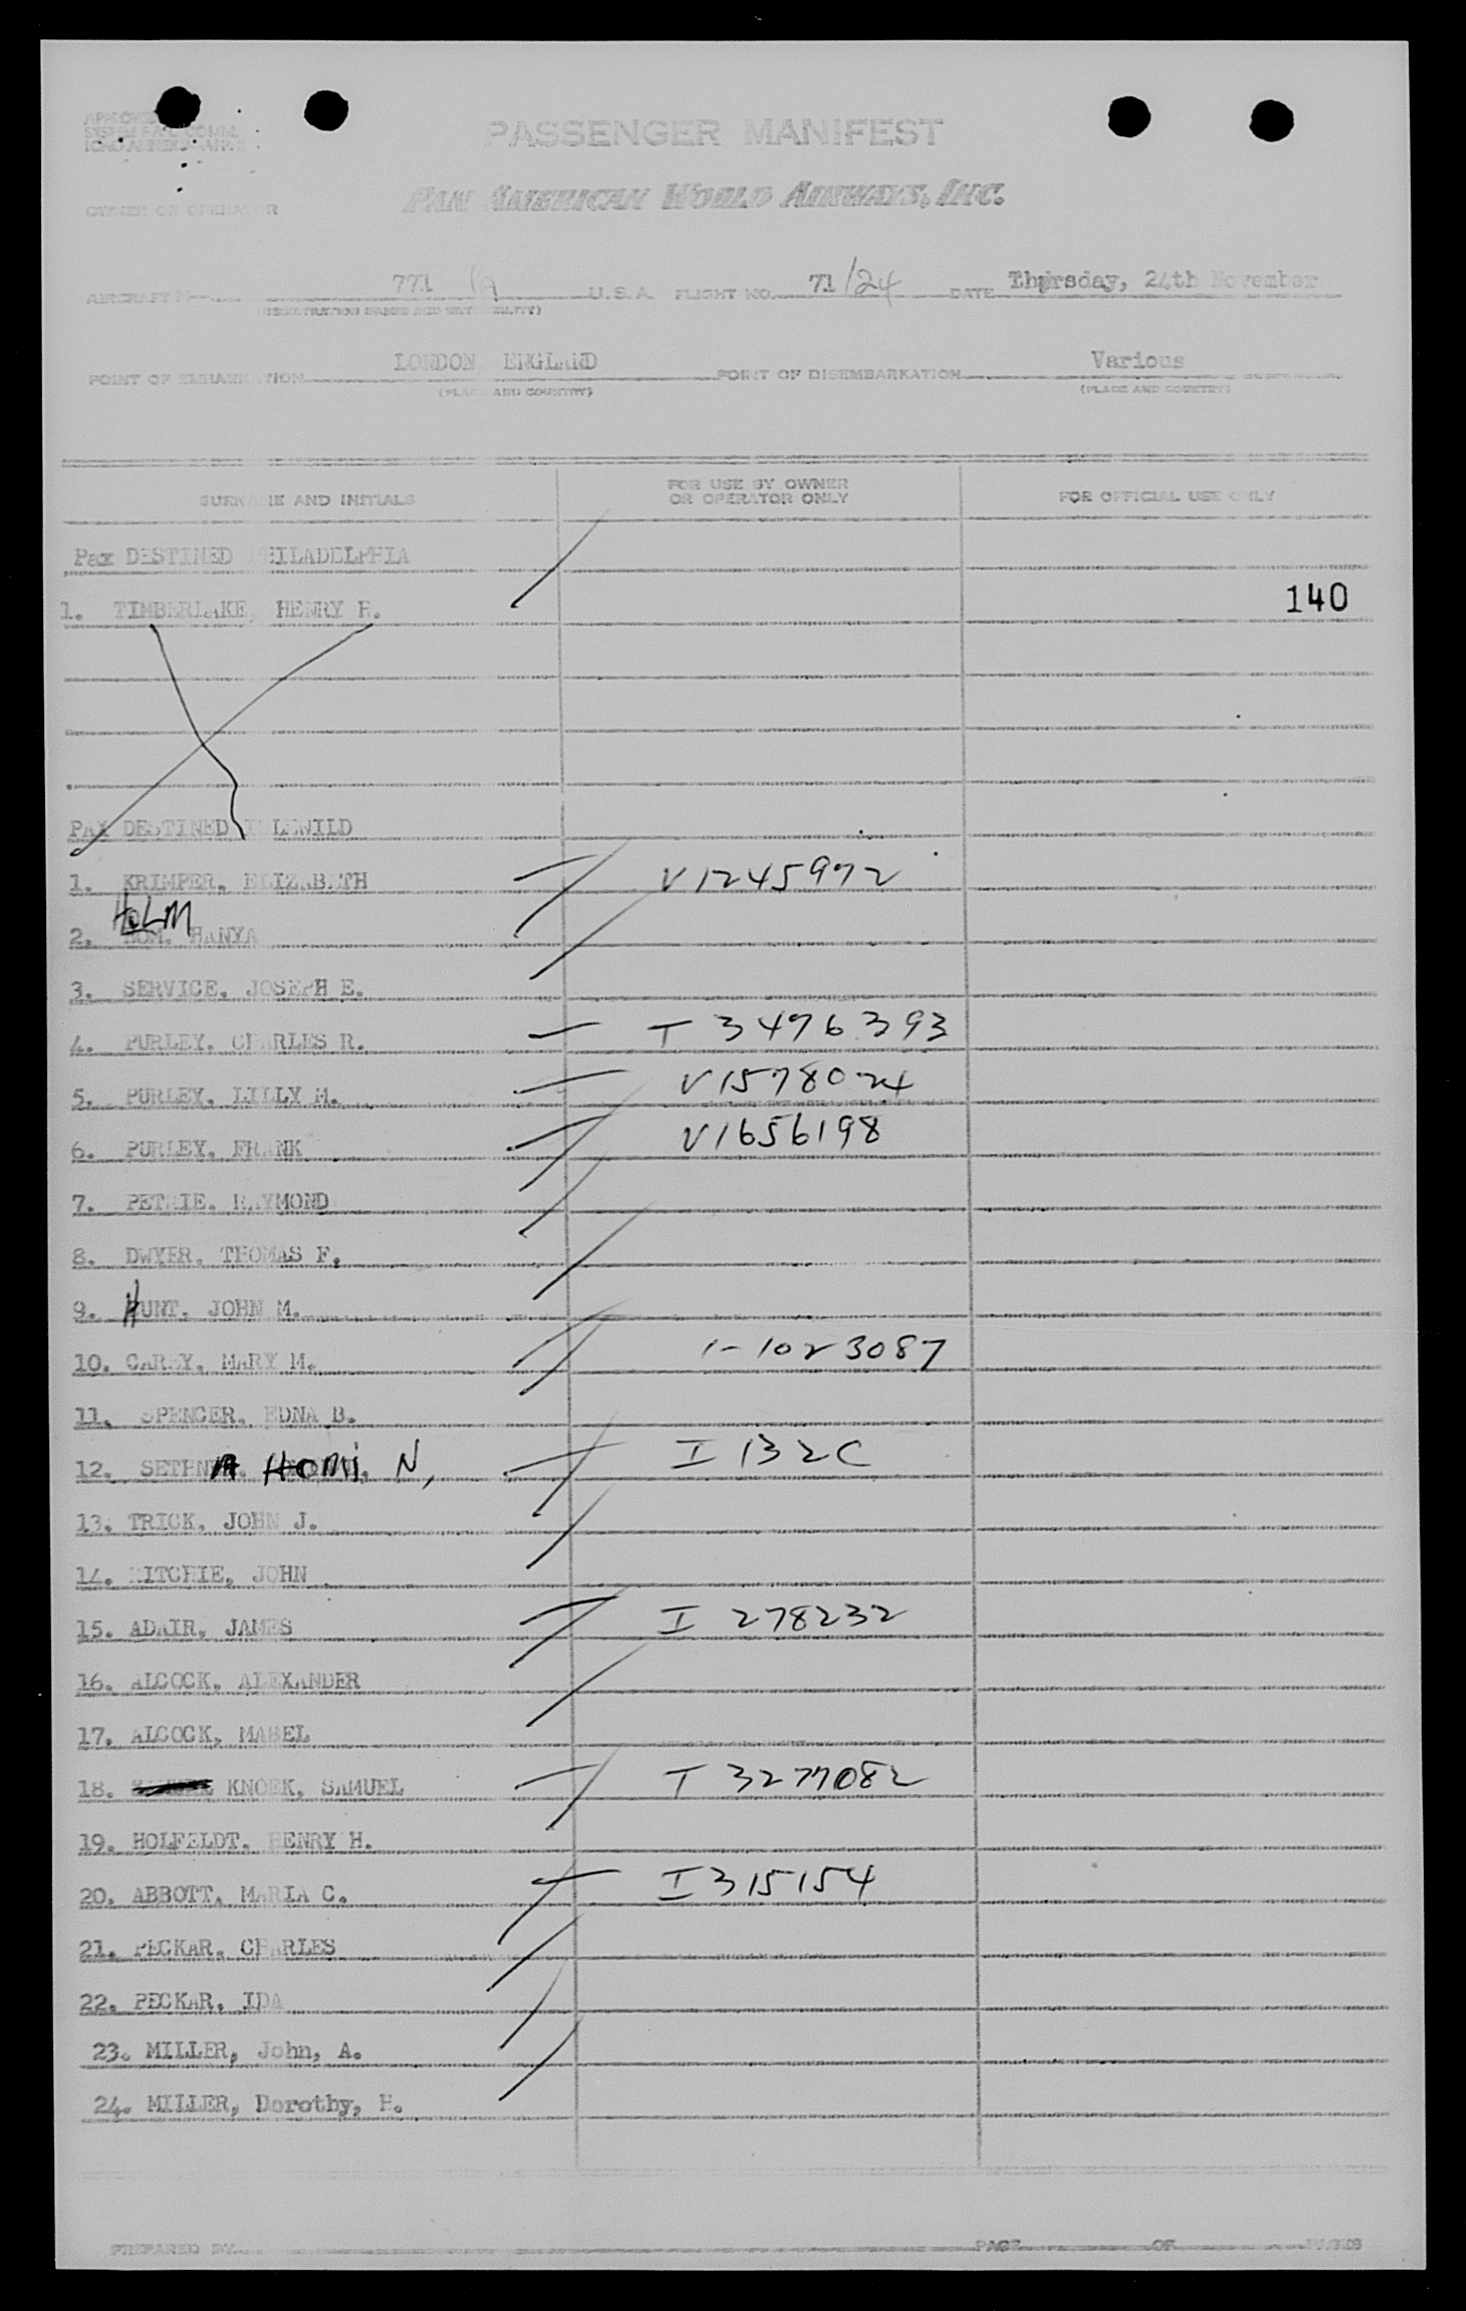 PASSENGER MANIFEST
PAN AMERICAN WORLD AIRWAYS, INC.
OWNER OR OPERATOR
AIRCRAFT N 771 U.S.A. FLIGHT NO. 71/24 DATE Thursday, 24th November
POINT OF EMBARKATION LONDON ENGLAND POINT OF DISEMBARKATION Various
(PLACE AND COUNTRY) (PLACE AND COUNTRY)
SURNAME AND INITIALS FOR USE BY OWNER OR OPERATOR ONLY FOR OFFICIAL USE ONLY
Pax DESTINED PHILADELPHIA
1. TIMBERLAKE, HENRY H. 140
PAX DESTINED IDLEWILD
1. KRIMPER, ELIZABETH V1245972
HOLM
2. HANYA
3. SERVICE, JOSEPH E.
4. PURLEY, CHARLES R. T 3476393
5. PURLEY, LILLY M. V1578024
6. PURLEY, FRANK V1656198
7. PETRIE, RAYMOND
8. DWYER, THOMAS F.
9. HUNT, JOHN M.
10. CAREY, MARY M. 1-1023087
11. SPENCER, EDNA B.
12. SETHNA HOMI N, I 132C
13. TRICK, JOHN J.
14. RITCHIE, JOHN
15. ADAIR, JAMES I 278232
16. ALCOCK, ALEXANDER
17. ALCOCK, MABEL
18. KNOEK, SAMUEL T 3277082
19. HOLFELDT, HENRY H.
20. ABBOTT, MARIA C. I315154
21. PECKAR, CHARLES
22. PECKAR, IDA
23. MILLER, John, A.
24. MILLER, Dorothy, H.
PREPARED BY PAGE OF PAGES